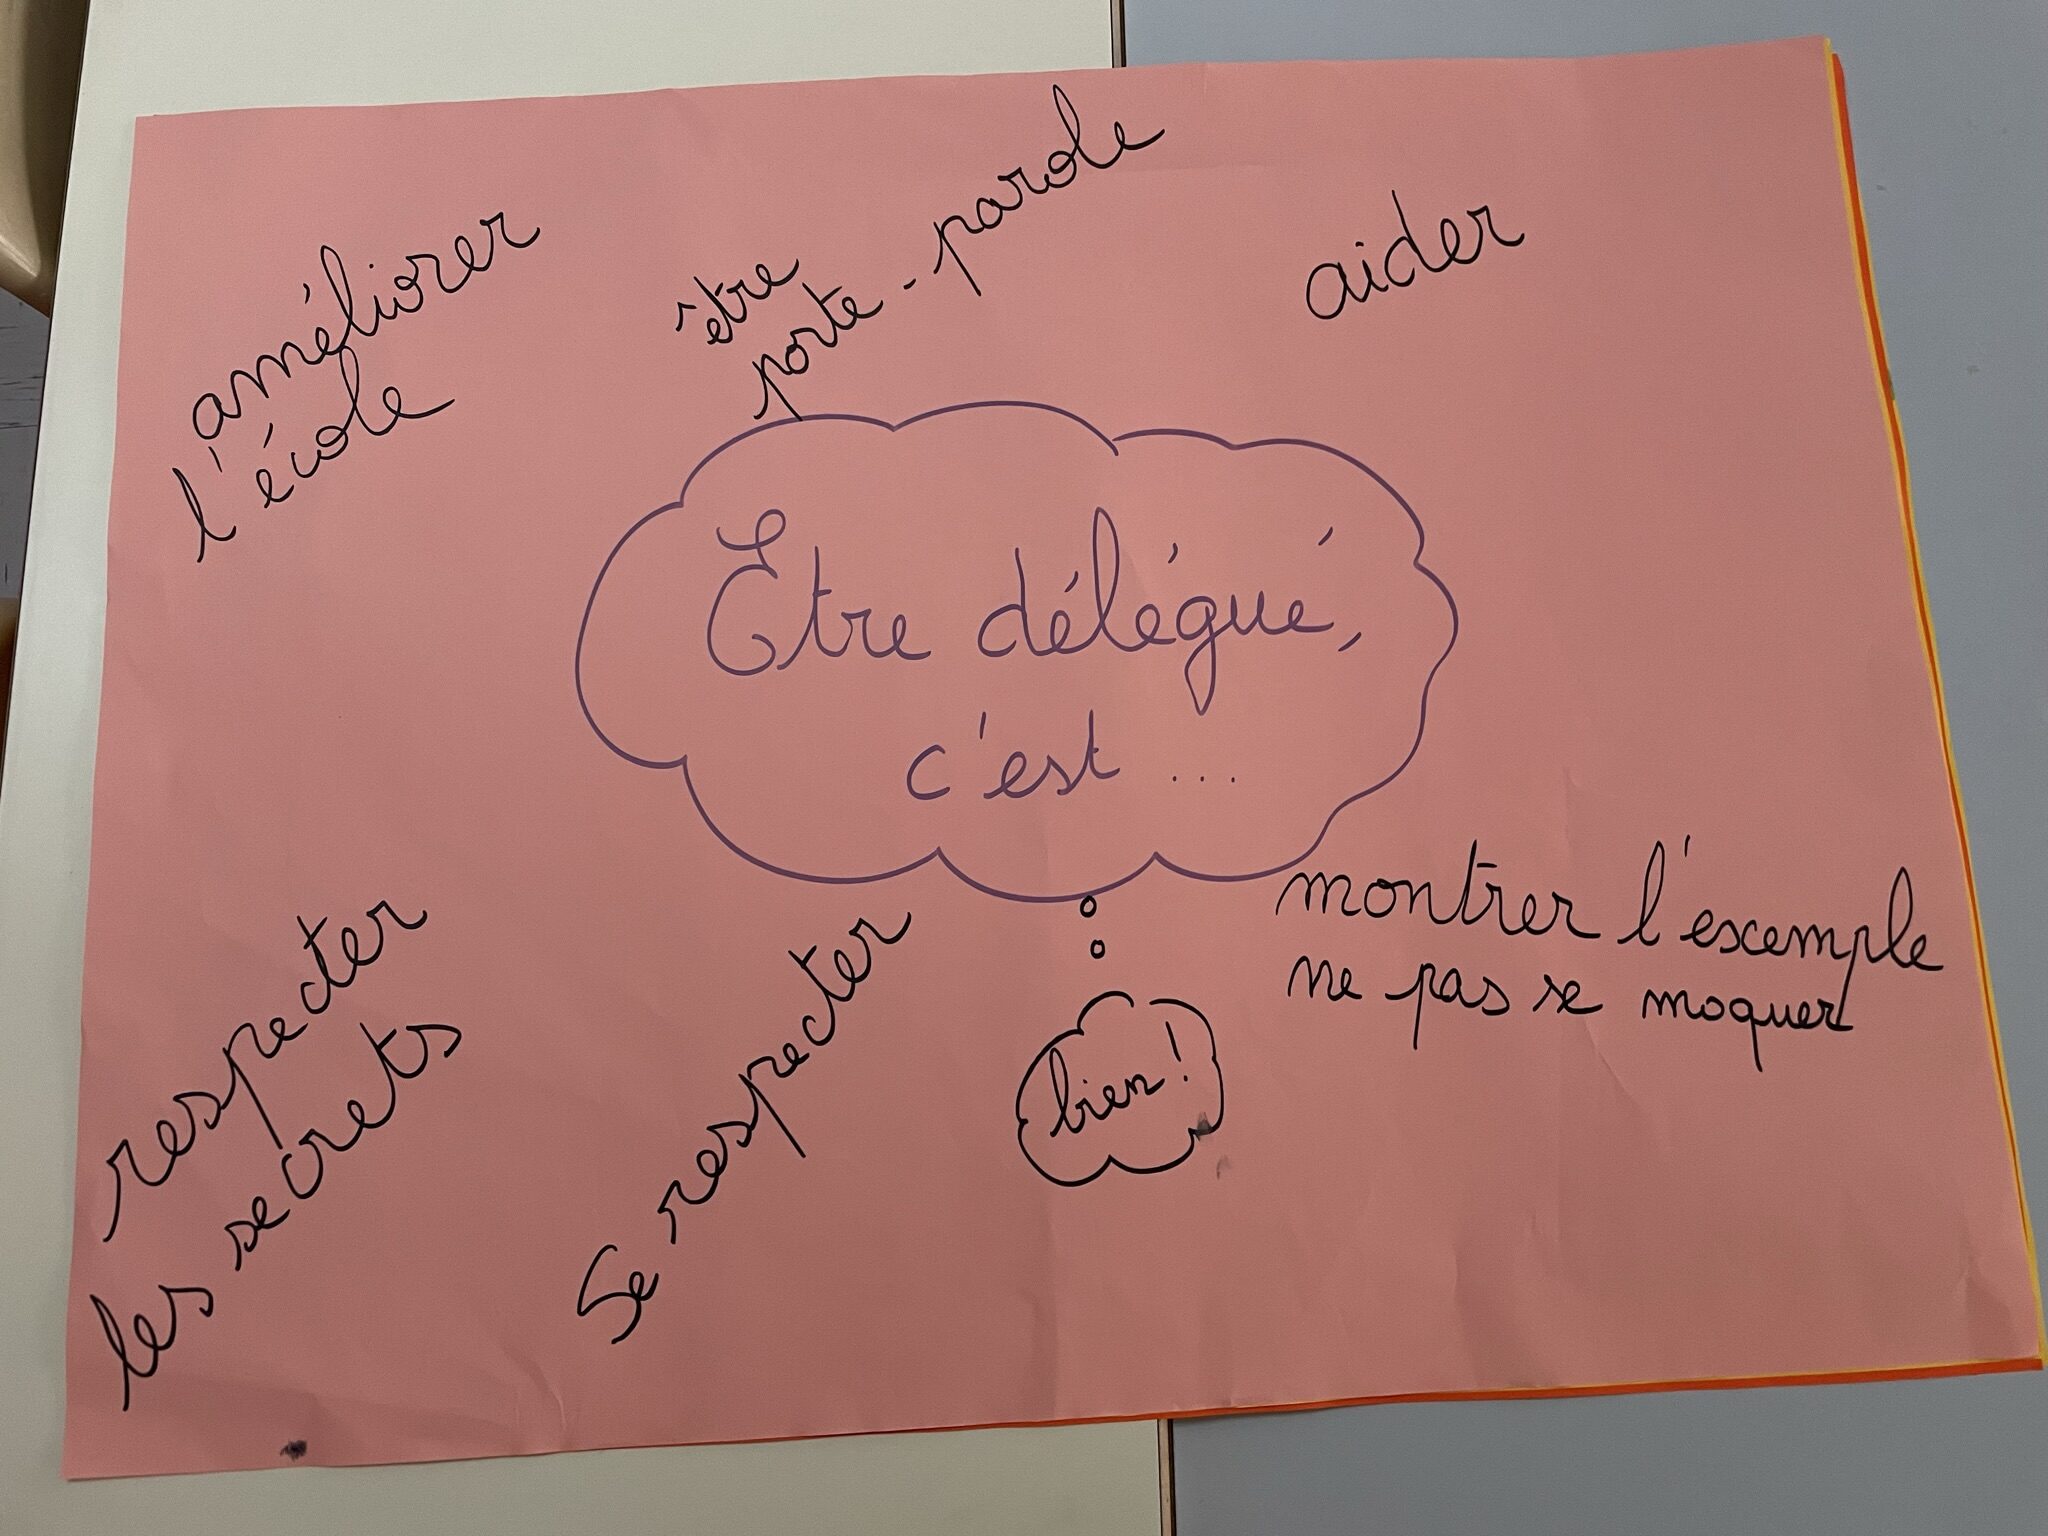 améliorer
l'école
être
porte-parole
aider
Être délégué,
c'est ...
respecter
les secrets
Se respecter
bien !
montrer l'excemple
ne pas se moquer